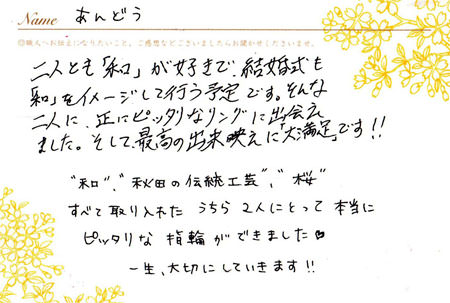 Name あんどう
◎職人へお伝えになりたいこと、ご感想などございましたらお聞かせくださいませ。
二人とも「和」が好きで、結婚式も
「和」をイメージして行う予定です。そんな
二人に、正にピッタリなリングに出会え
ました。そして最高の出来映えに「大満足」です!!
"和"、"秋田の伝統工芸"、"桜"
すべて取り入れた うちら 2人にとって 本当に
ピッタリな 指輪ができました♥
一生、大切にしていきます!!